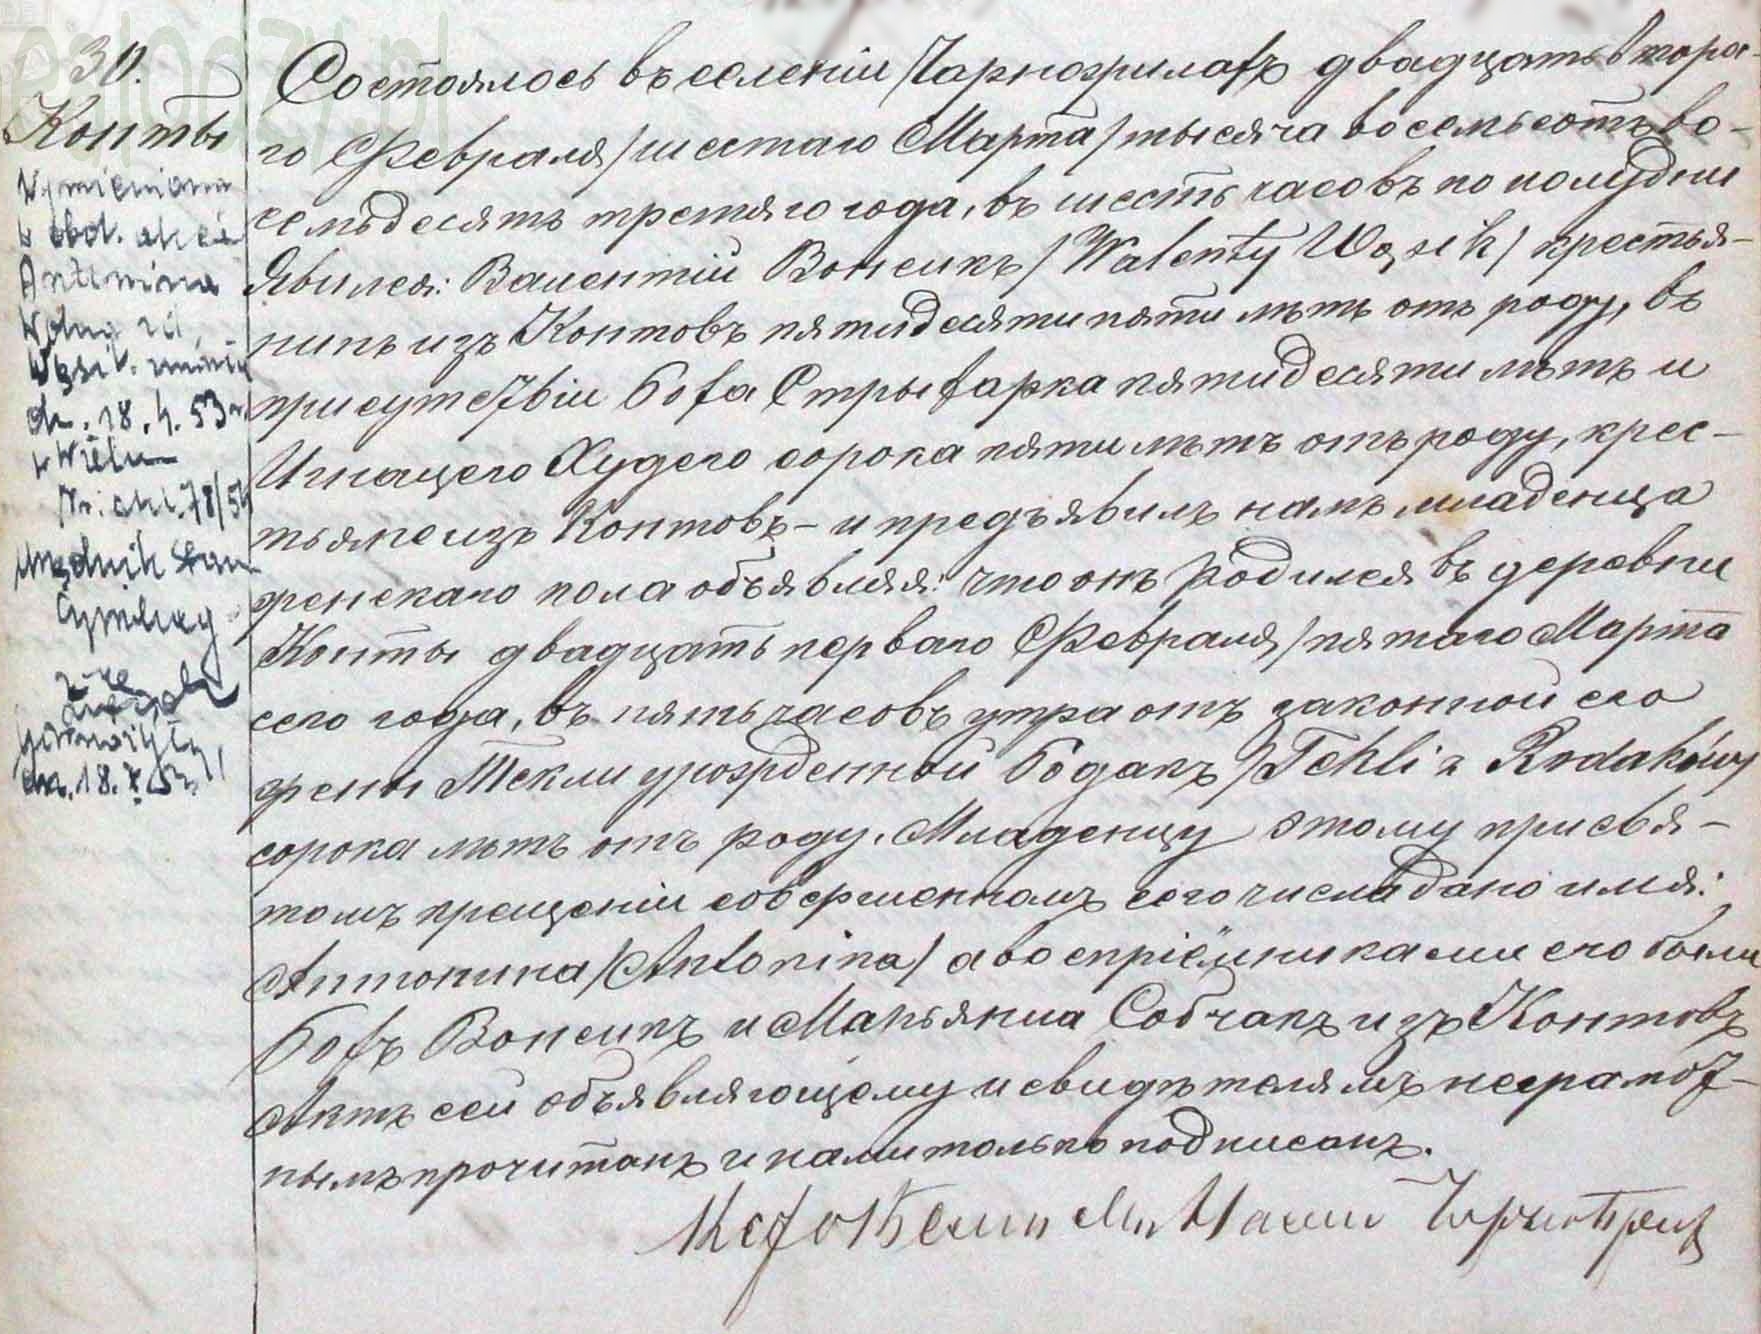 30.
Конты
Wymieniona
w obok. akcie
Antonina
Wolna zd
Wąsik. umarła
dn. 18.
w Wielu-
Nr. akt. 78/54
Urzędnik Stanu
Cywilnego
Состоялось въ селеніи Чарножилахъ двадцать втора-
го Февраля /шестаго Марта/ тысяча восемьсотъ во-
семьдесятъ третяго года, въ шесть часовъ по полудни
Явился: Валентій Вонсикъ /Walenty Wąsik/ крестья-
нинъ изъ Контовъ пятидесяти пяти лѣтъ отъ роду, въ
присутствіи Стрыхарка пятидесяти лѣтъ и
Игнацего Худего сорока пяти лѣтъ отъ роду, крес-
тьяне изъ Контовъ – и предъявилъ намъ младенца
женскаго пола объявляя: что онъ родился въ деревни
Конты двадцать перваго Февраля /пятаго Марта
сего года, въ пять часовъ утра отъ законной его
жены Текли урожденной Родакъ /Tekli z Rodaków/
сорока лѣтъ отъ роду. Младенцу этому при свя-
томъ крещеніи совершенномъ сего числа дано имя:
Антонина /Antonina/ а воспріемниками его были
Вонсикъ и Марьянна Собчакъ изъ Контовъ
Актъ сей объявляющему и свидѣтелямъ неграмот-
нымъ прочитанъ и нами только подписанъ.